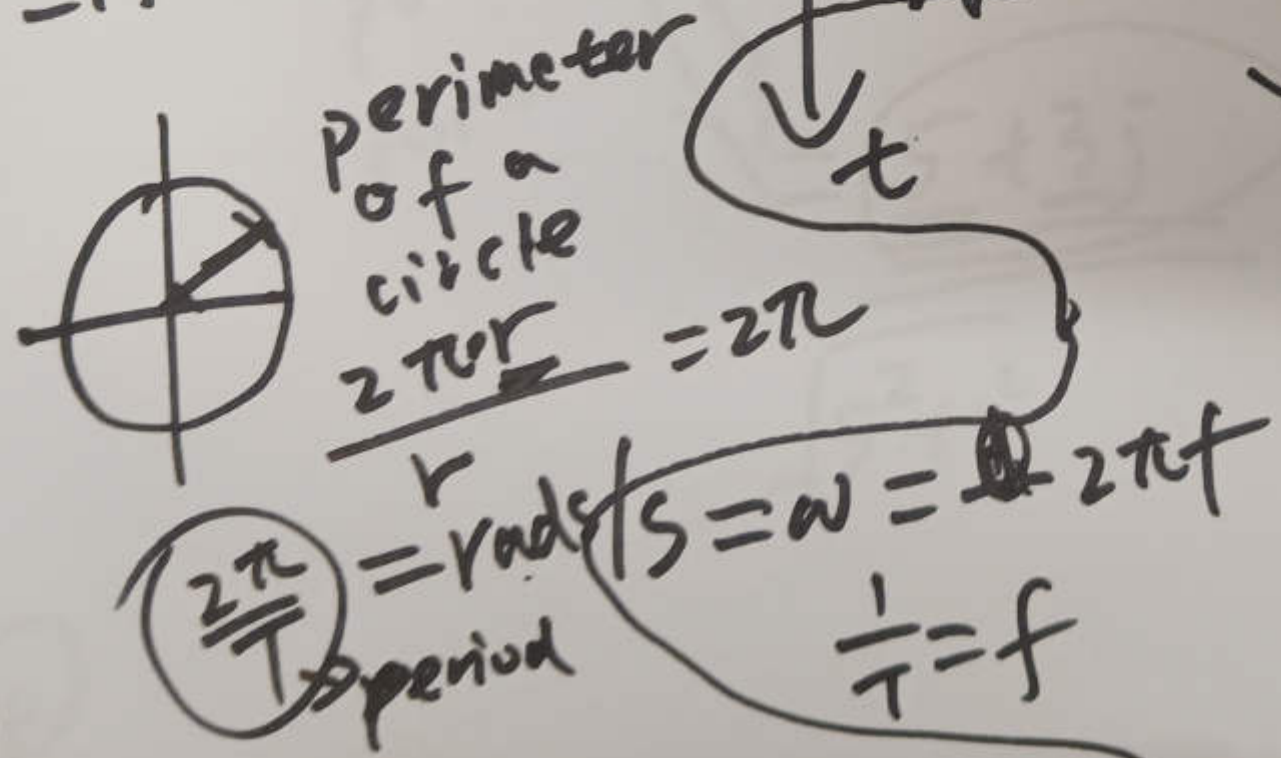 perimeter
of a
circle
t
2πr
/
r
= 2π
2π
/
T
= rads/s = ω = 2πf
→ period
1/T = f